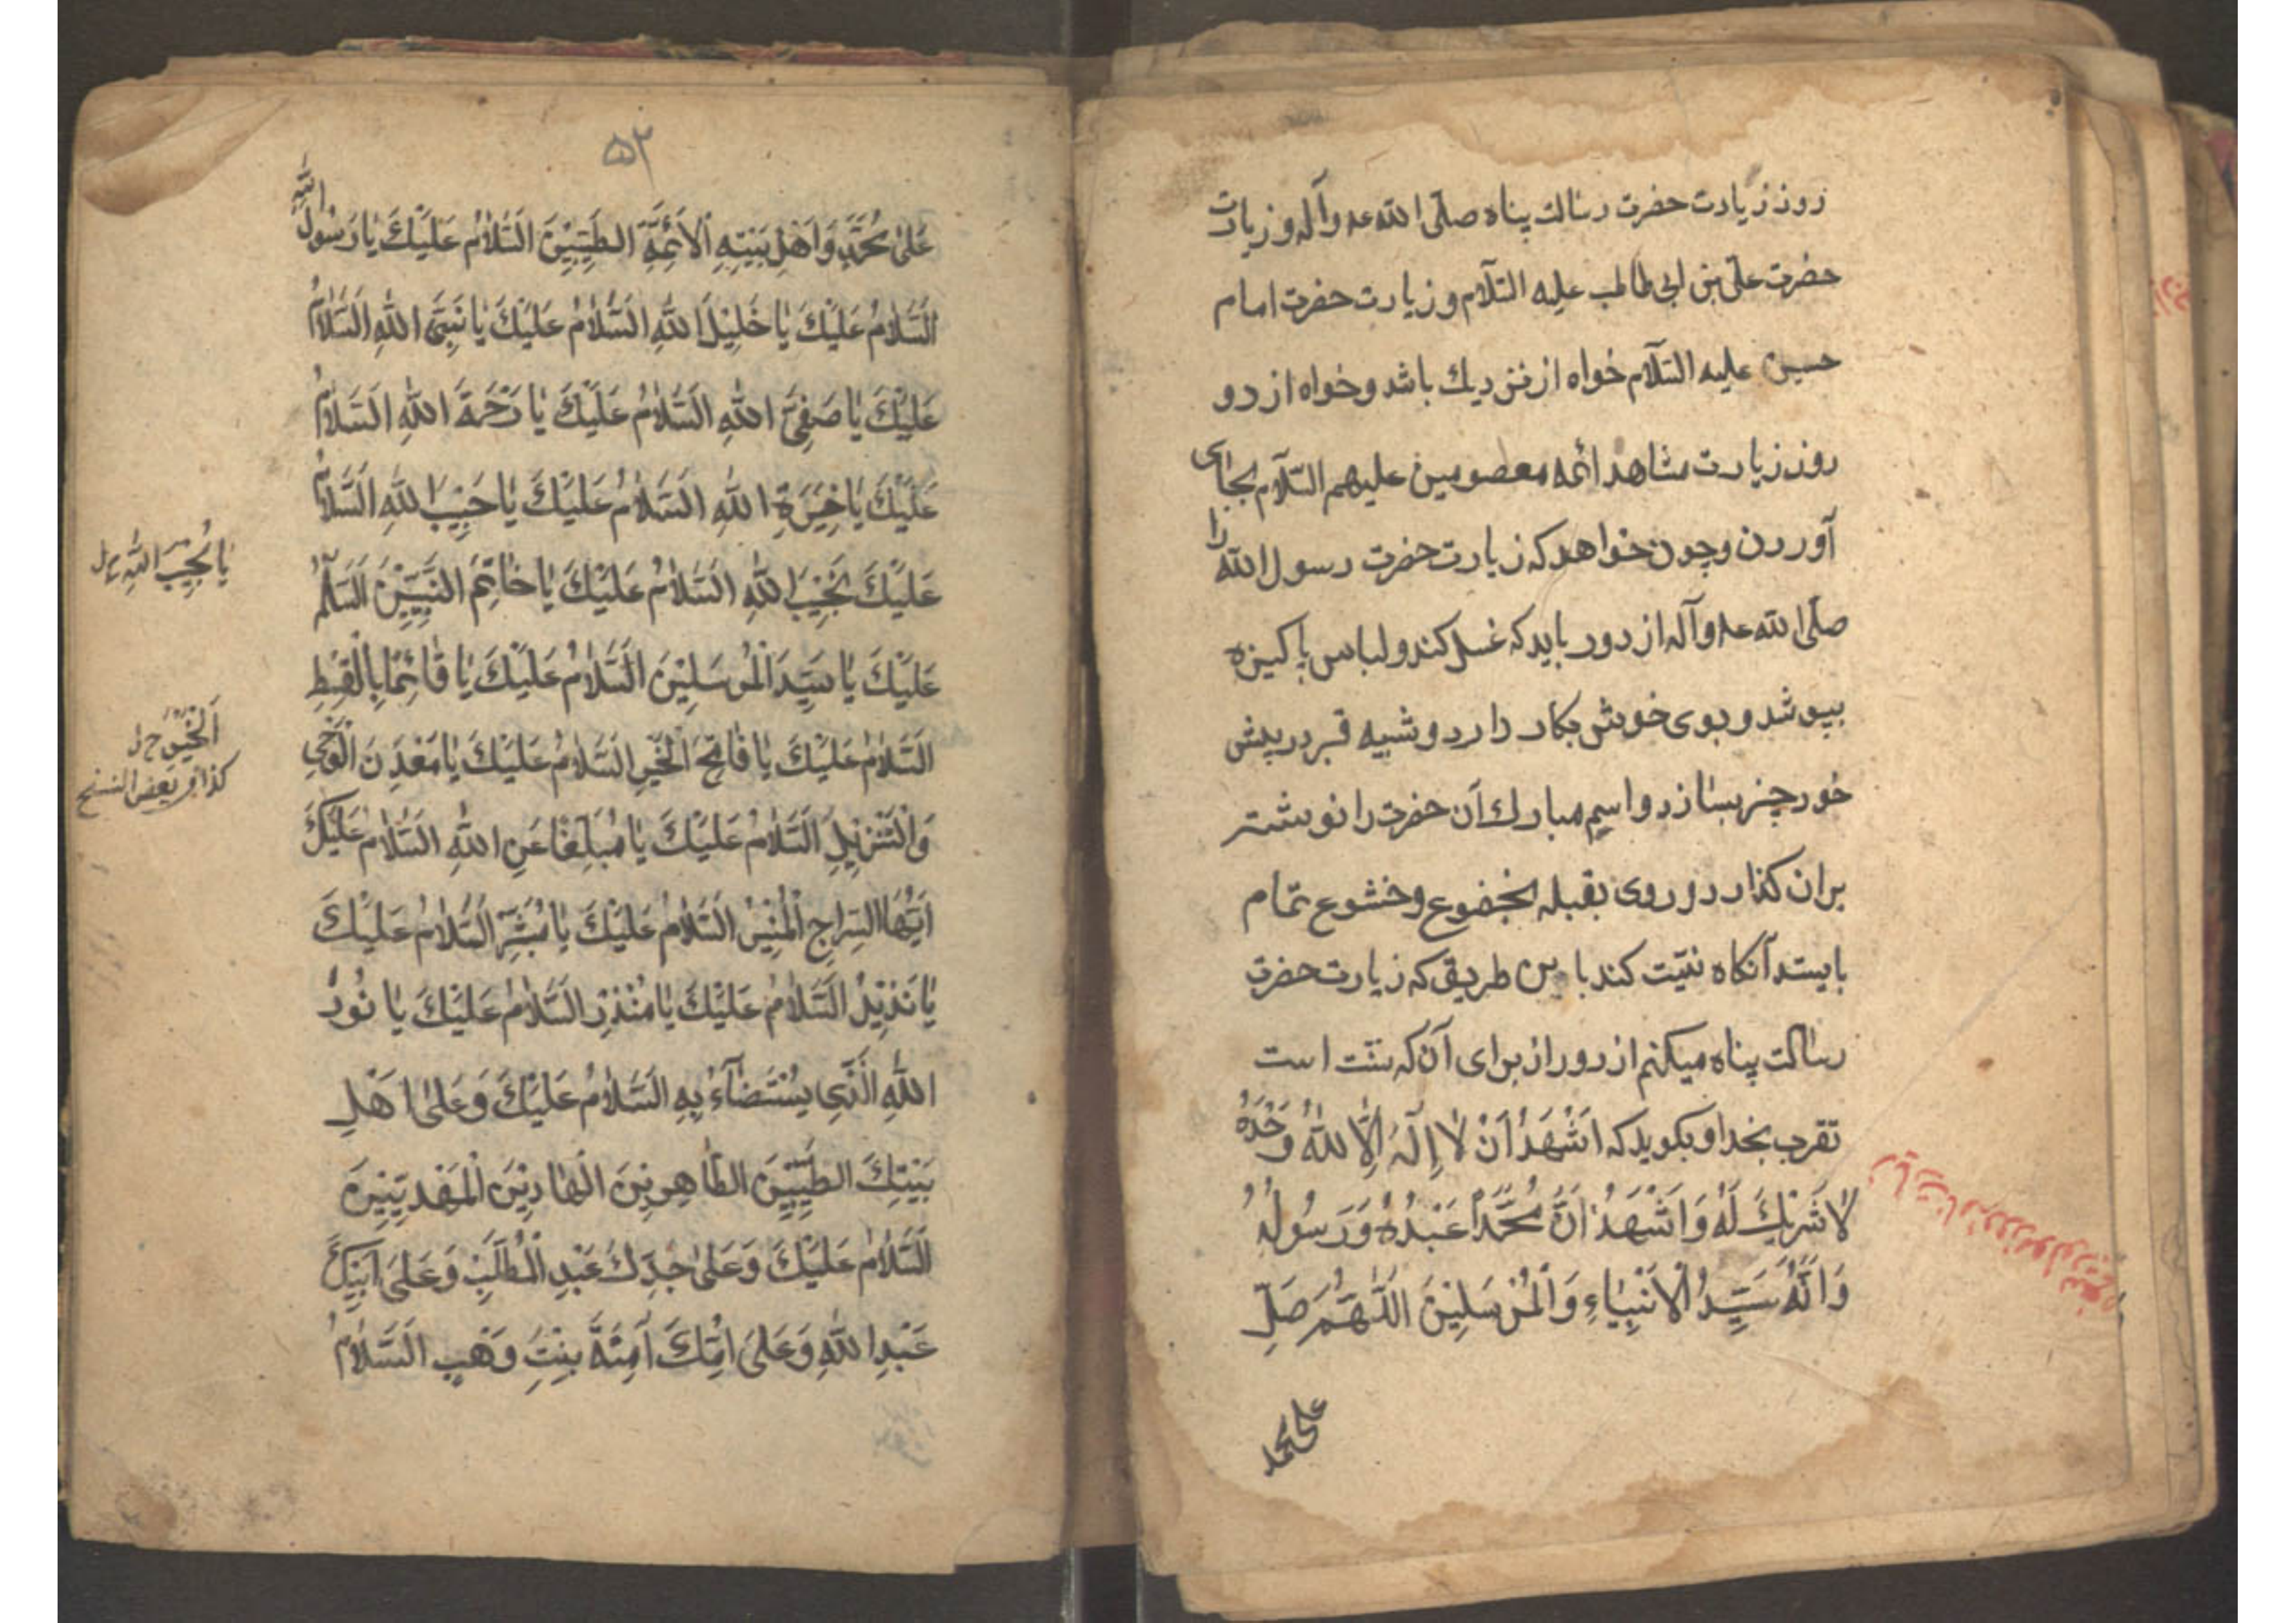 روز زیارت حضرت رسالت پناه صلّی الله عه وآله وزیارت
حضرت علیّ بن ابی طالب علیه السّلام وزیارت حضرت امام
حسین علیه السّلام خواه از نزدیك باشد وخواه از دو
روز زیارت مشاهد ائمه معصومین علیهم السّلام بجای
آوردن وچون خواهد که زیارت حضرت رسول الله را
صلّی الله عه وآله از دور باید که غسل کند ولباس پاکیزه
بپوشد وبوی خویش بکار دارد وشبیه قبر در پیش
خود چنر بسازد واسم مبارك آن حضرت را نوشته
بران کذارد وروی بقبله بخضوع وخشوع تمام
بایستد آنکاه نیّت کند باین طریق که زیارت حضرت
رسالت پناه میکنم از دور از برای آن که سنّت است
تقرب بخدا وبکوید که اَشْهَدُ اَنْ لاٰ اِلٰهَ اِلَّا اللهُ وَحْدَهُ
لاٰ شَرِیْكَ لَهُ وَاَشْهَدُ اَنَّ مُحَمَّداً عَبْدُهُ وَرَسُولُهُ
وَاَنَّهُ سَیِّدُ الْاَنْبِیٰاءِ وَالْمُرْسَلِیْنَ اَللّٰهُمَّ صَلِّ
علی محمد
۵۲
عَلیٰ مُحَمَّدٍ وَاَهْلِ بَیْتِهِ الْاَئِمَّةِ الطَّیِّبِیْنَ اَلسَّلاٰمُ عَلَیْكَ یٰا رَسُولَ اللهِ
اَلسَّلاٰمُ عَلَیْكَ یٰا خَلِیْلَ اللهِ اَلسَّلاٰمُ عَلَیْكَ یٰا نَبِیَّ اللهِ اَلسَّلاٰمُ
عَلَیْكَ یٰا صَفِیَّ اللهِ اَلسَّلاٰمُ عَلَیْكَ یٰا رَحْمَةَ اللهِ اَلسَّلاٰمُ
عَلَیْكَ یٰا خِیَرَةَ اللهِ اَلسَّلاٰمُ عَلَیْكَ یٰا حَبِیْبَ اللهِ اَلسَّلاٰمُ
عَلَیْكَ نَجِیْبَ اللهِ اَلسَّلاٰمُ عَلَیْكَ یٰا خٰاتِمَ النَّبِیِّیْنَ اَلسَّلٰمُ
یا نُجِیْبَ اللهِ خ ل
عَلَیْكَ یٰا سَیِّدَ الْمُرْسَلِیْنَ اَلسَّلاٰمُ عَلَیْكَ یٰا قٰائِمًا بِالْقِسْطِ
اَلسَّلاٰمُ عَلَیْكَ یٰا فٰاتِحَ الْخَیْرِ اَلسَّلاٰمُ عَلَیْكَ یٰا مَعْدِنَ الْوَحْیِ
کذا فی بعض النسخ
وَالتَّنْزِیْلِ اَلسَّلاٰمُ عَلَیْكَ یٰا مُبَلِّغًا عَنِ اللهِ اَلسَّلاٰمُ عَلَیْكَ
اَیُّهَا السِّرٰاجُ الْمُنِیْرُ اَلسَّلاٰمُ عَلَیْكَ یٰا مُبَشِّرُ اَلسَّلاٰمُ عَلَیْكَ
یٰا نَذِیْرُ اَلسَّلاٰمُ عَلَیْكَ یٰا مُنْذِرُ اَلسَّلاٰمُ عَلَیْكَ یٰا نُوْرَ
اللهِ الَّذِی یُسْتَضٰآءُ بِهِ اَلسَّلاٰمُ عَلَیْكَ وَعَلیٰ اَهْلِ
بَیْتِكَ الطَّیِّبِیْنَ الطّٰاهِرِیْنَ الْهٰادِیْنَ الْمَهْدِیِّیْنَ
اَلسَّلاٰمُ عَلَیْكَ وَعَلیٰ جَدِّكَ عَبْدِ الْمُطَّلِبِ وَعَلیٰ اَبِیْكَ
عَبْدِ اللهِ وَعَلیٰ اُمِّكَ اٰمِنَةَ بِنْتِ وَهْبٍ اَلسَّلاٰمُ